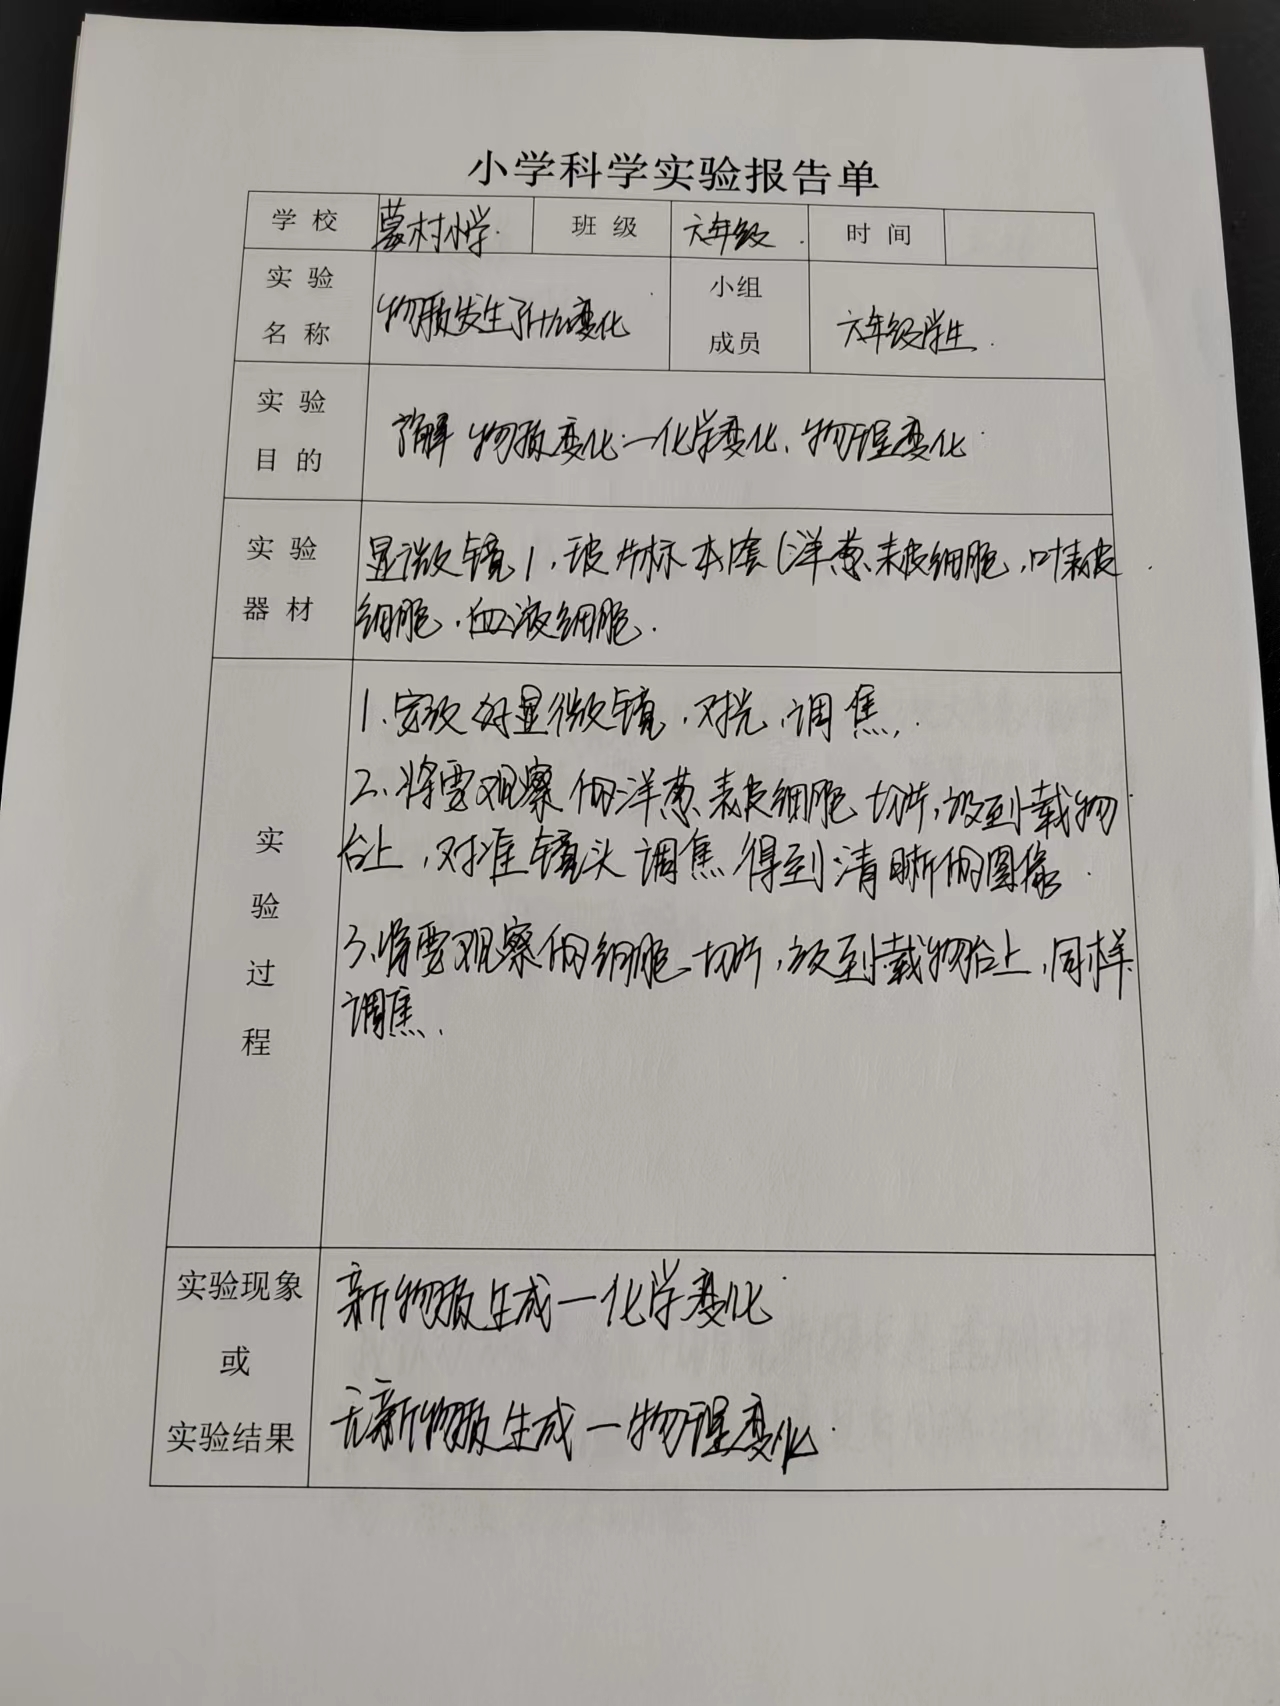 小学科学实验报告单
学校 蒙村小学. 班级 六年级. 时间
实验名称 物质发生了什么变化 小组成员 六年级学生.
实验目的 了解物质变化:一化学变化、物理变化.
实验器材 显微镜1,玻片标本1套(洋葱表皮细胞,叶表皮
细胞,血液细胞.
实验过程
1、安放好显微镜,对光,调焦.
2、将要观察的洋葱表皮细胞切片,放到载物
台上,对准镜头调焦得到清晰的图像.
3、将要观察的细胞切片,放到载物台上,同样
调焦.
实验现象
或
实验结果
新物质生成一化学变化.
无新物质生成一物理变化.